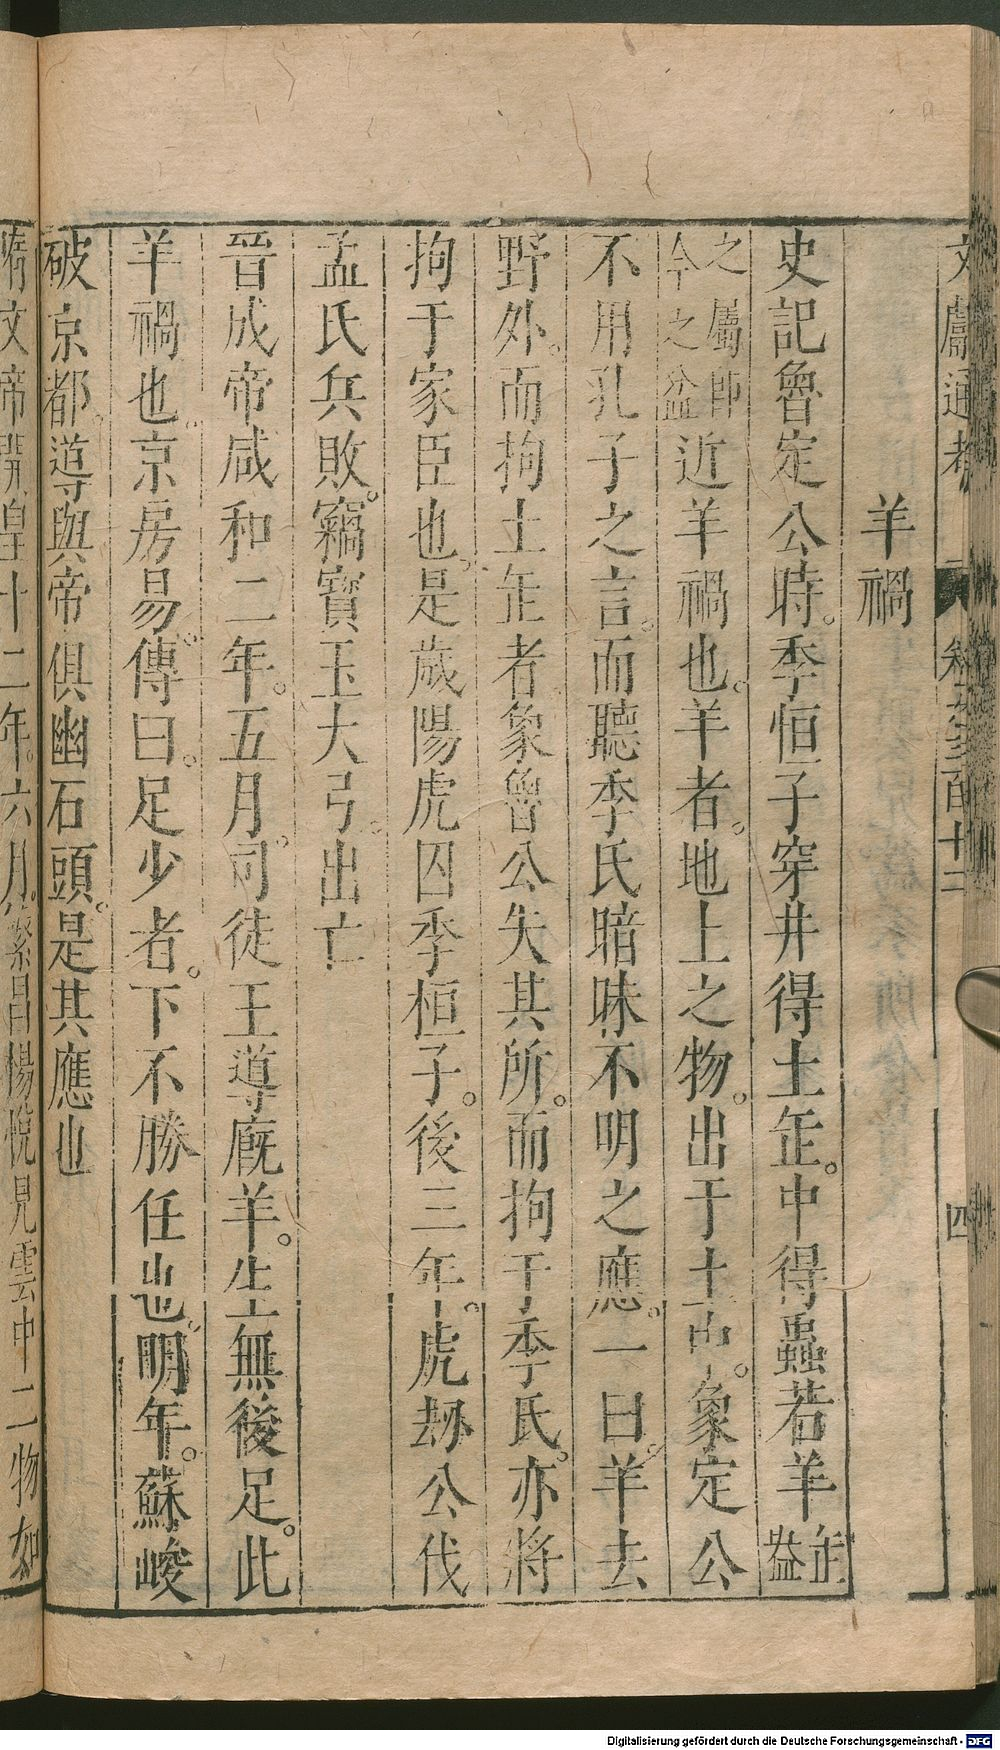 文獻通考 卷三百十二 四
羊禍
史記魯定公時。季恒子穿井得土缶。中得蟲若羊缶盎
之屬即今之盆近羊禍也。羊者。地上之物。出于土中。象定公
不用孔子之言。而聽季氏暗昧不明之應。一曰。羊去
野外。而拘土缶者。象魯公失其所。而拘于季氏。亦將
拘于家臣也。是歲陽虎囚季桓子。後三年。虎劫公伐
孟氏兵敗。竊寶玉大弓。出亡
晉成帝咸和二年。五月。司徒王導廐羊。生無後足。此
羊禍也。京房易傳曰。足少者。下不勝任也。明年。蘇峻
破京都。導與帝俱幽石頭。是其應也
隋文帝開皇十二年。六月。繁昌楊悅見雲中二物如
Digitalisierung gefördert durch die Deutsche Forschungsgemeinschaft - DFG